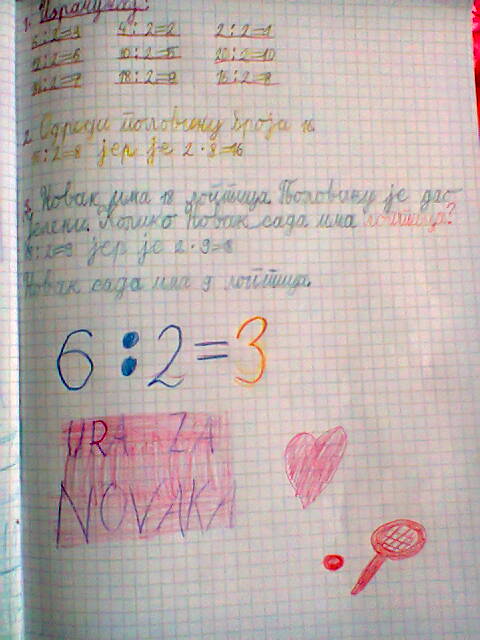 1. Израчунај:
6:2=3 4:2=2 2:2=1
12:2=6 10:2=5 20:2=10
14:2=7 18:2=9 16:2=8
2. Одреди половину броја 16.
16:2=8 јер је 2·8=16
3. Новак има 18 лоптица. Половину је дао
Јелени. Колико Новак сада има лоптица?
18:2=9 јер је 2·9=18
Новак сада има 9 лоптица.
6:2=3
URA ZA
NOVAKA